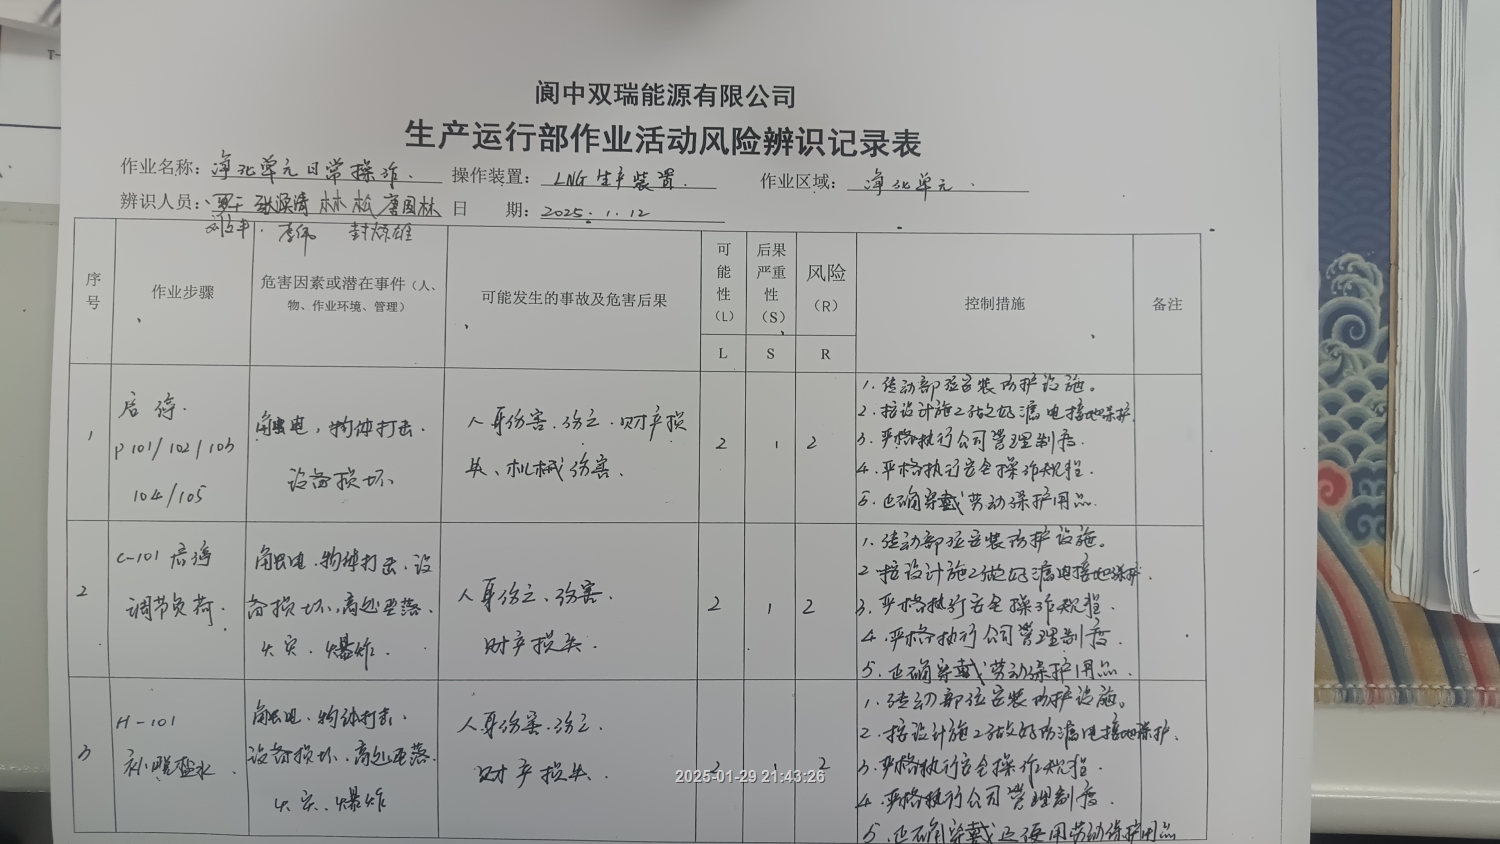 阆中双瑞能源有限公司
生产运行部作业活动风险辨识记录表
作业名称：净化单元日常操作. 操作装置：LNG生产装置. 作业区域：净化单元.
辨识人员： 林松 唐国林 日 期：2025.1.12
李伟
序号 作业步骤 危害因素或潜在事件（人、物、作业环境、管理） 可能发生的事故及危害后果 可能性（L） 后果严重性（S） 风险（R） 控制措施 备注
L S R
1 启停. P101/102/103 104/105
触电，物体打击. 设备损坏
人身伤害.伤亡.财产损失、机械伤害.
2 1 2
1.传动部位安装防护设施。
2.按设计施工做好漏电接地保护.
3.严格执行公司管理制度.
4.严格执行安全操作规程.
5.正确穿戴劳动保护用品.
2 C-101启停 调节负荷.
触电.物体打击.设备损坏、高处坠落. 火灾.爆炸.
人身伤亡、伤害. 财产损失.
2 1 2
1.传动部位安装防护设施。
2 按设计施工做好漏电接地保护.
3.严格执行安全操作规程.
4.严格执行公司管理制度.
5.正确穿戴劳动保护用品.
3 H-101 补脱盐水.
触电.物体打击. 设备损坏.高处坠落. 火灾.爆炸
人身伤害.伤亡. 财产损失.
2 1 2
1.传动部位安装防护设施。
2.按设计施工做好防漏电接地保护.
3.严格执行安全操作规程.
4.严格执行公司管理制度.
5.正确穿戴正使用劳动保护用品
2025-01-29 21:43:26